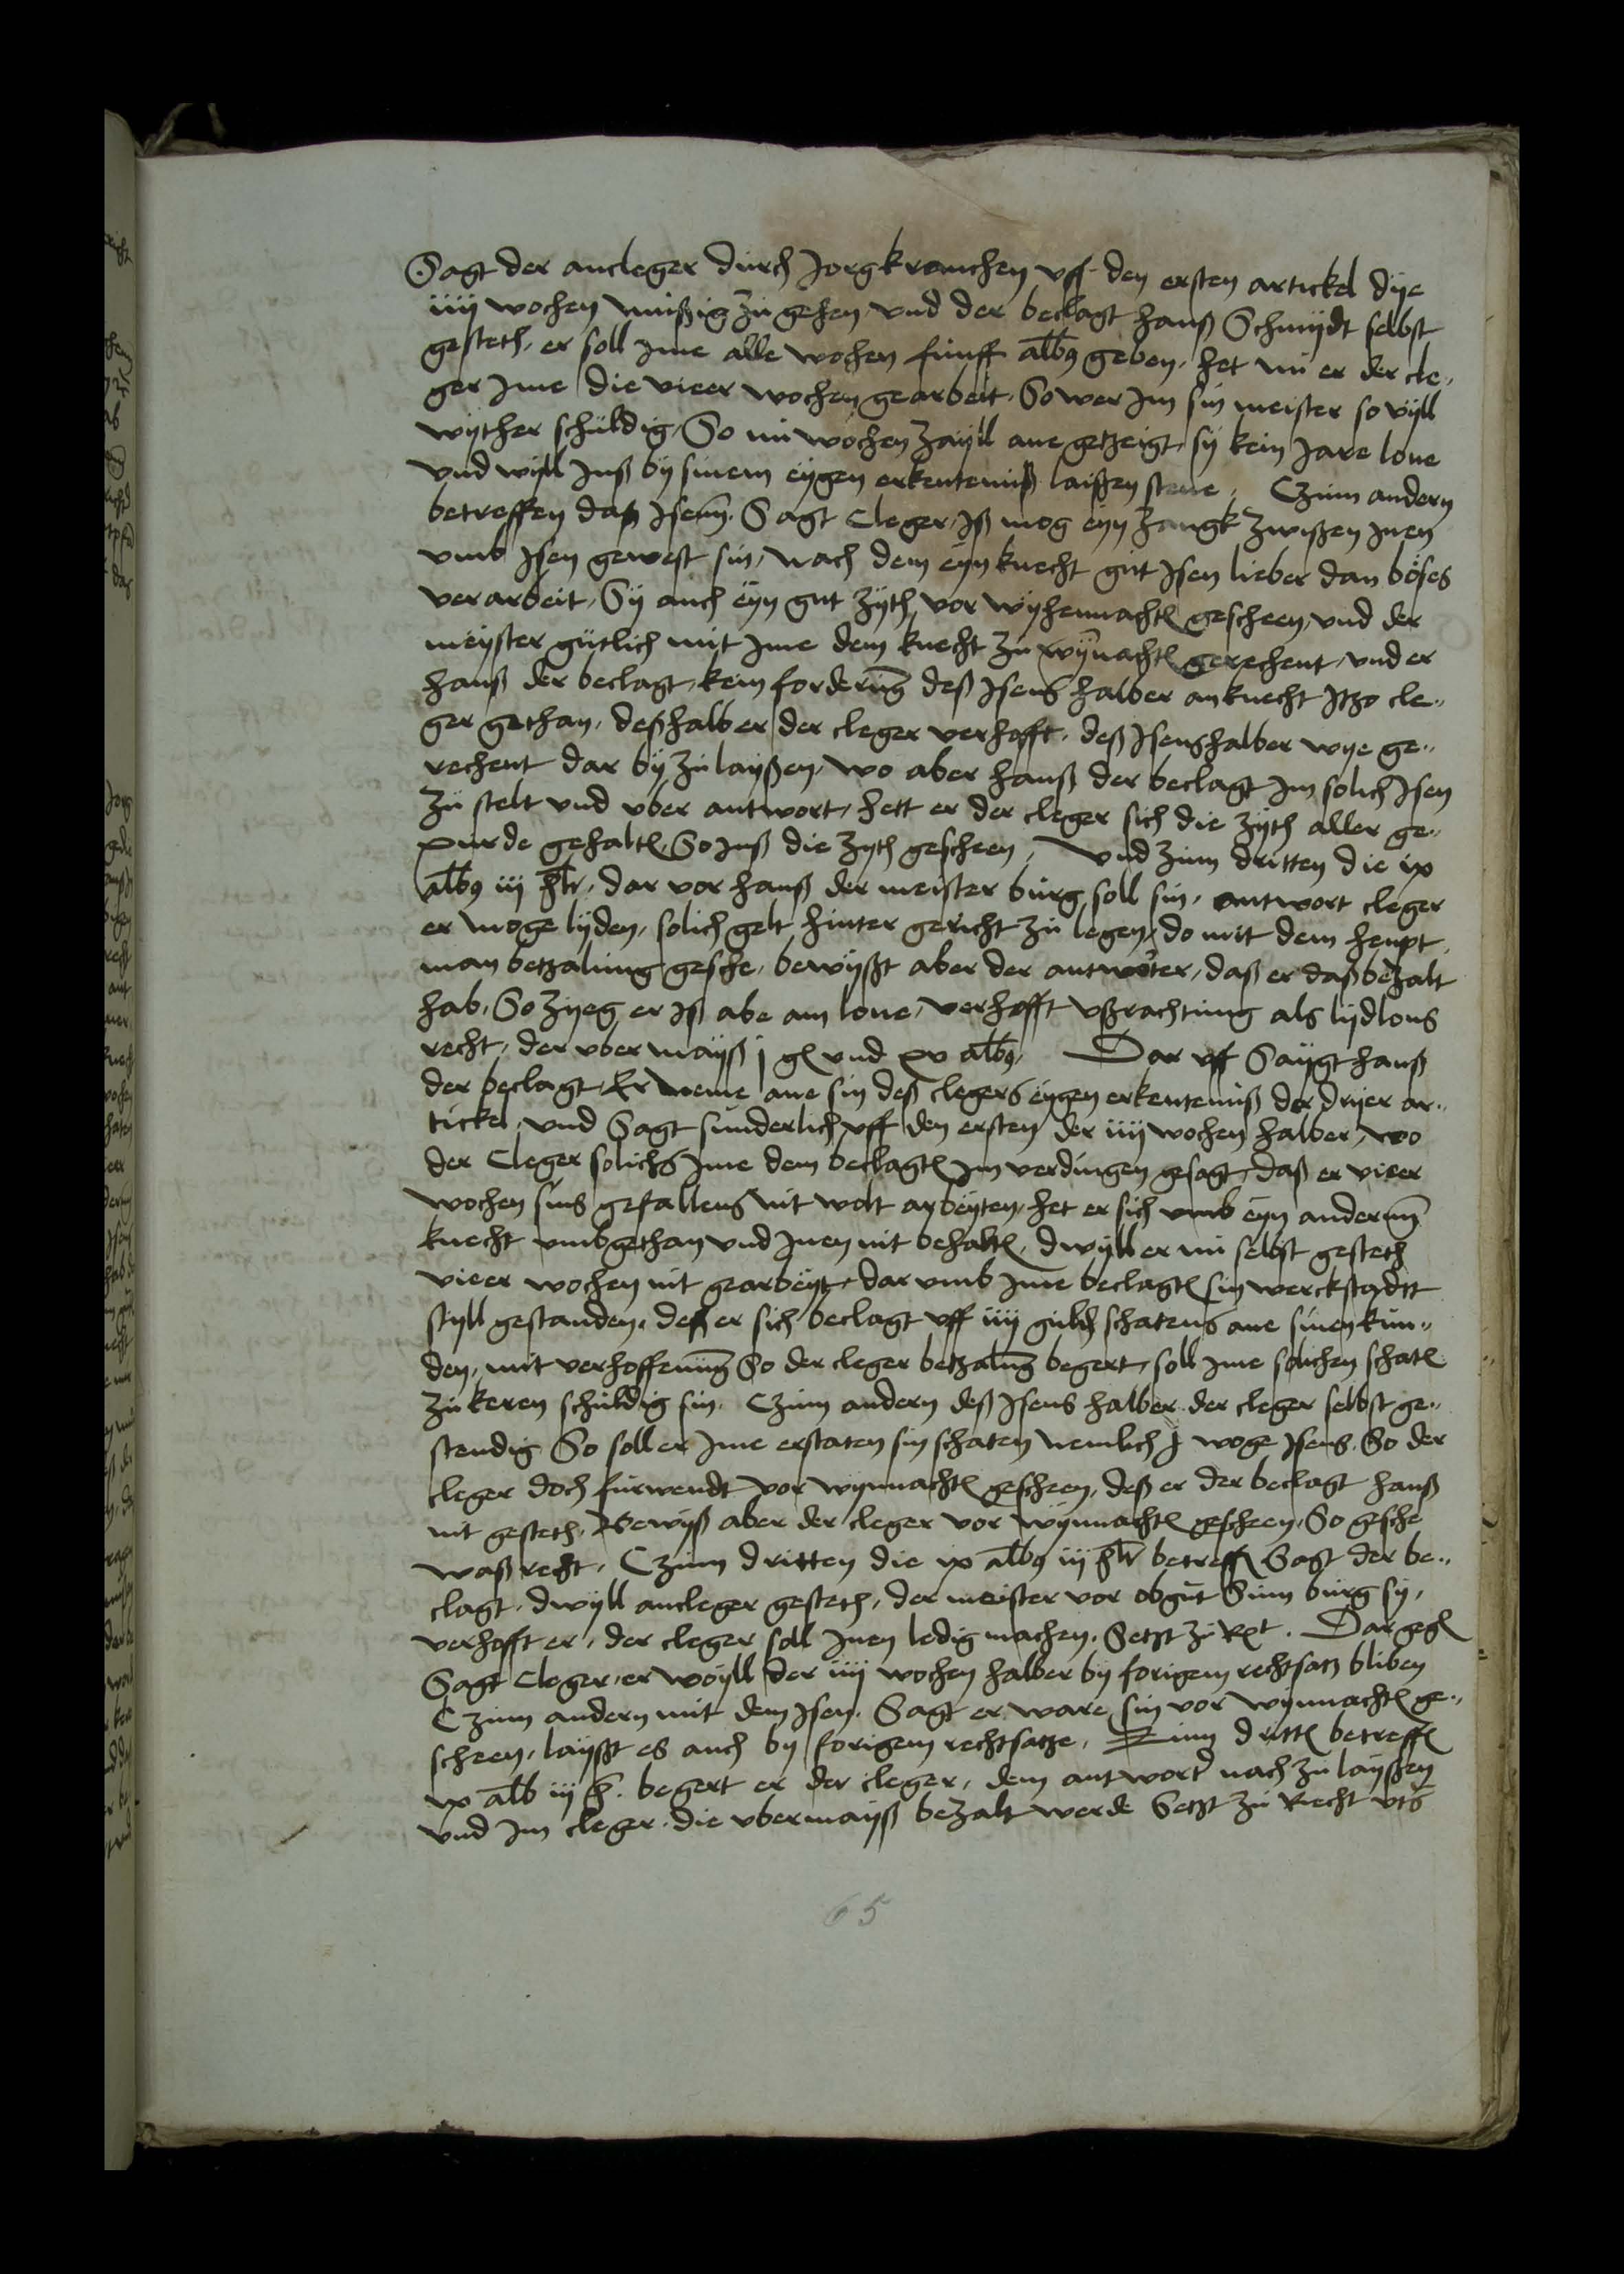 Sagt der ancleger durch Jorg krauchen uff den ersten artickel dÿe
iiij wochen müßig zu gehen und der beclagt hanß Schmÿdt selbst
gesteth, er soll Jme alle wochen funff albus geben, het nu er der cle„
ger Jme die vieer wochen gearbeit, So wer Jm sin meister so vÿll
wÿther schuldig, So nu wochen zaÿll ane getzeigt, sÿ kein Jare lone
und wÿll Jnß bÿ sinem eÿgen erkentemiß laißen stene, Czum andern
betreffen daß Jsenn, Sagt Cleger, Jß mog eÿn zangk zwißen Jnen
umb Jsen gewest sin, nach dem eÿn knecht gut Jsen lieber dan böses
verarbeit, Sÿ auch eÿn gut zÿth vor wÿhennachten gescheen, und der
meÿster gütlich mit Jme dem knecht zu wÿnnachten gerechent, und er
hanß der beclagt, kein forderung deß Jsens halber an knecht Jtzo cle„
ger gethan, deßhalb er der cleger verhofft, deß Jsenshalber wÿe ge„
rechent dar bÿ zu laÿßen, wo aber hanß der beclagt Jm solich Jsen
zu stelt und uber antwort, hett er der cleger sich die zÿth aller ge„
purde gehalten, So Jnß die zyth gescheen, Und zum dritten die ix
albus iij hlr, dar vor hanß der meister burg soll sin, antwort cleger
er moge lÿden, solich gelt hinter gericht zu legen, do mit dem heupt
man betzalung gesche, bewÿßt aber der antworter, daß er daß bezalt
hab, So zÿeg er Jß abe am lone, verhofft ußrachtung als lÿdlons
recht, der ubermayß j gl und xv albus, Dar uff Saÿgt hanß
der beclagt, Er neme ane sin deß clegers eÿgen erkentemiß der drÿer ar„
tickel, und Sagt sunderlich uff den ersten der iiij wochen halber, wo
der Cleger solichs Jme dem beclagten Jm verdingen gesagt, daß er vieer
wochen sins gefallens nit wolt arbeÿten, het er sich umb eÿn andernn
knecht umbgethan und Jnen nit behalten, dwÿll er nu selbst gesteth
vieer wochen nit gearbeÿt, dar umb Jme beclagten sin werckstadtt
styll gestanden, deß er sich beclagt uff iiij gulden schatens ane sinen kun„
den, mit verhoffenung So der cleger betzalung begert, soll Jme solichen schaten
zu keren schuldig sin, Czum andern deß Jsens halber der cleger selbst ge„
stendig So soll er Jme erstaten sin schaten nemlich j woge Jsens, So der
cleger doch furwendt vor wynnachten gescheen, deß er der beclagt hanß
nit gesteth, Bewÿß aber der cleger vor wÿnnachten gescheen, So gesche
waß recht, Czum dritten die ix albus iij hlr betreffen Sagt der be„
clagt, dwÿll ancleger gesteth, der meister vor obgut Sum burg sÿ,
verhofft er, der cleger soll Jnen ledig machen, Setzt zu Recht. Dar gegen
Sagt Cleger, er woÿll der iiij wochen halber bÿ forigem rechtsatz bliben
Czum andern mit dem Jsen, Sagt er ware sin vor wÿnnachten ge„
scheen, laÿßt es auch by forigem rechtsatze, Zum dritten betreffen
ix alb iij h. begert er der cleger, dem antworter nach zu laÿßen
und Jm cleger die ubermaÿß bezalt werde Setzt zu Recht uts
65